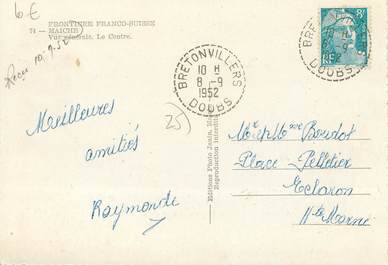 6 €
FRONTIERE FRANCO-SUISSE
74 - MAICHE
Vue générale. Le Centre.
10.9.52
BRETONVILLERS
10 H
8 -9
1952
DOUBS
BRETONVILLERS
8-9
52
DOUBS
8F
RF
25)
Meilleures
amitiés
Raymonde
Editions Photo
Reproduction interdite
Mr et Mme Boudot
Place Pelletier
Eclaron
Hte Marne